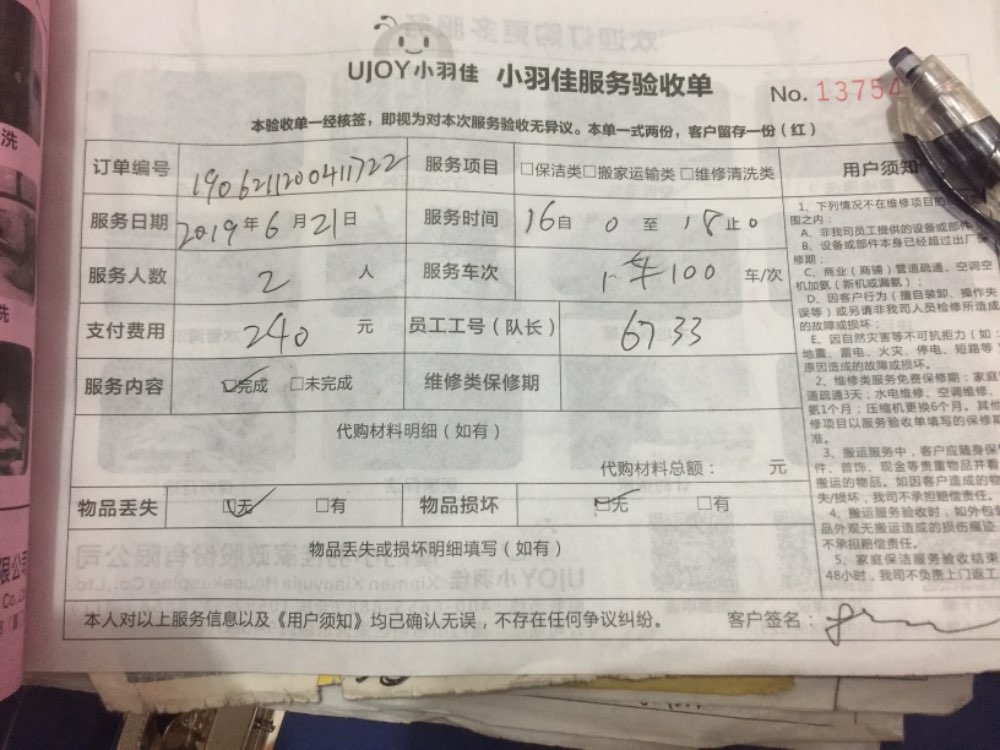 UJOY小羽佳 小羽佳服务验收单
No. 13754
本验收单一经核签，即视为对本次服务验收无异议。本单一式两份，客户留存一份（红）
订单编号 190621120041722 服务项目 □保洁类□搬家运输类 □维修清洗类
服务日期 2019年6月21日 服务时间 16自 0 至 18止 0
服务人数 2 人 服务车次 车100 车/次
支付费用 240 元 员工工号（队长） 6733
服务内容 □完成 □未完成 维修类保修期
代购材料明细（如有）
代购材料总额： 元
物品丢失 □无 □有 物品损坏 □无 □有
物品丢失或损坏明细填写（如有）
本人对以上服务信息以及《用户须知》均已确认无误，不存在任何争议纠纷。 客户签名：
用户须知
1、下列情况不在维修项目的
围之内：
A、非我司员工提供的设备或部件
B、设备或部件本身已经超过出厂
修期；
C、商业（商铺）管道疏通、空调空
机加氨（新机或漏氨）；
D、因客户行为（擅自装卸、操作失
误等）或另请非我司人员检修所造成
的故障或损坏；
E、因自然灾害等不可抗拒力（如：
地震、雷电、火灾、停电、短路等）
原因造成的故障或损坏。
2、维修类服务免费保修期：家庭
道疏通3天；水电维修、空调维修、
氨1个月；压缩机更换6个月。其他
修项目以服务验收单填写的保修期
准。
3、搬运服务中，客户应随身保
件、首饰、现金等贵重物品并看
搬运的物品。如因客户造成的物
失/损坏，我司不承担赔偿责任。
4、搬运服务验收时，如外包装
品外观无搬运造成的损伤痕迹
不承担赔偿责任。
5、家庭保洁服务验收结束
48小时，我司不负责上门返工
洗
洗
限公司
Co.,L